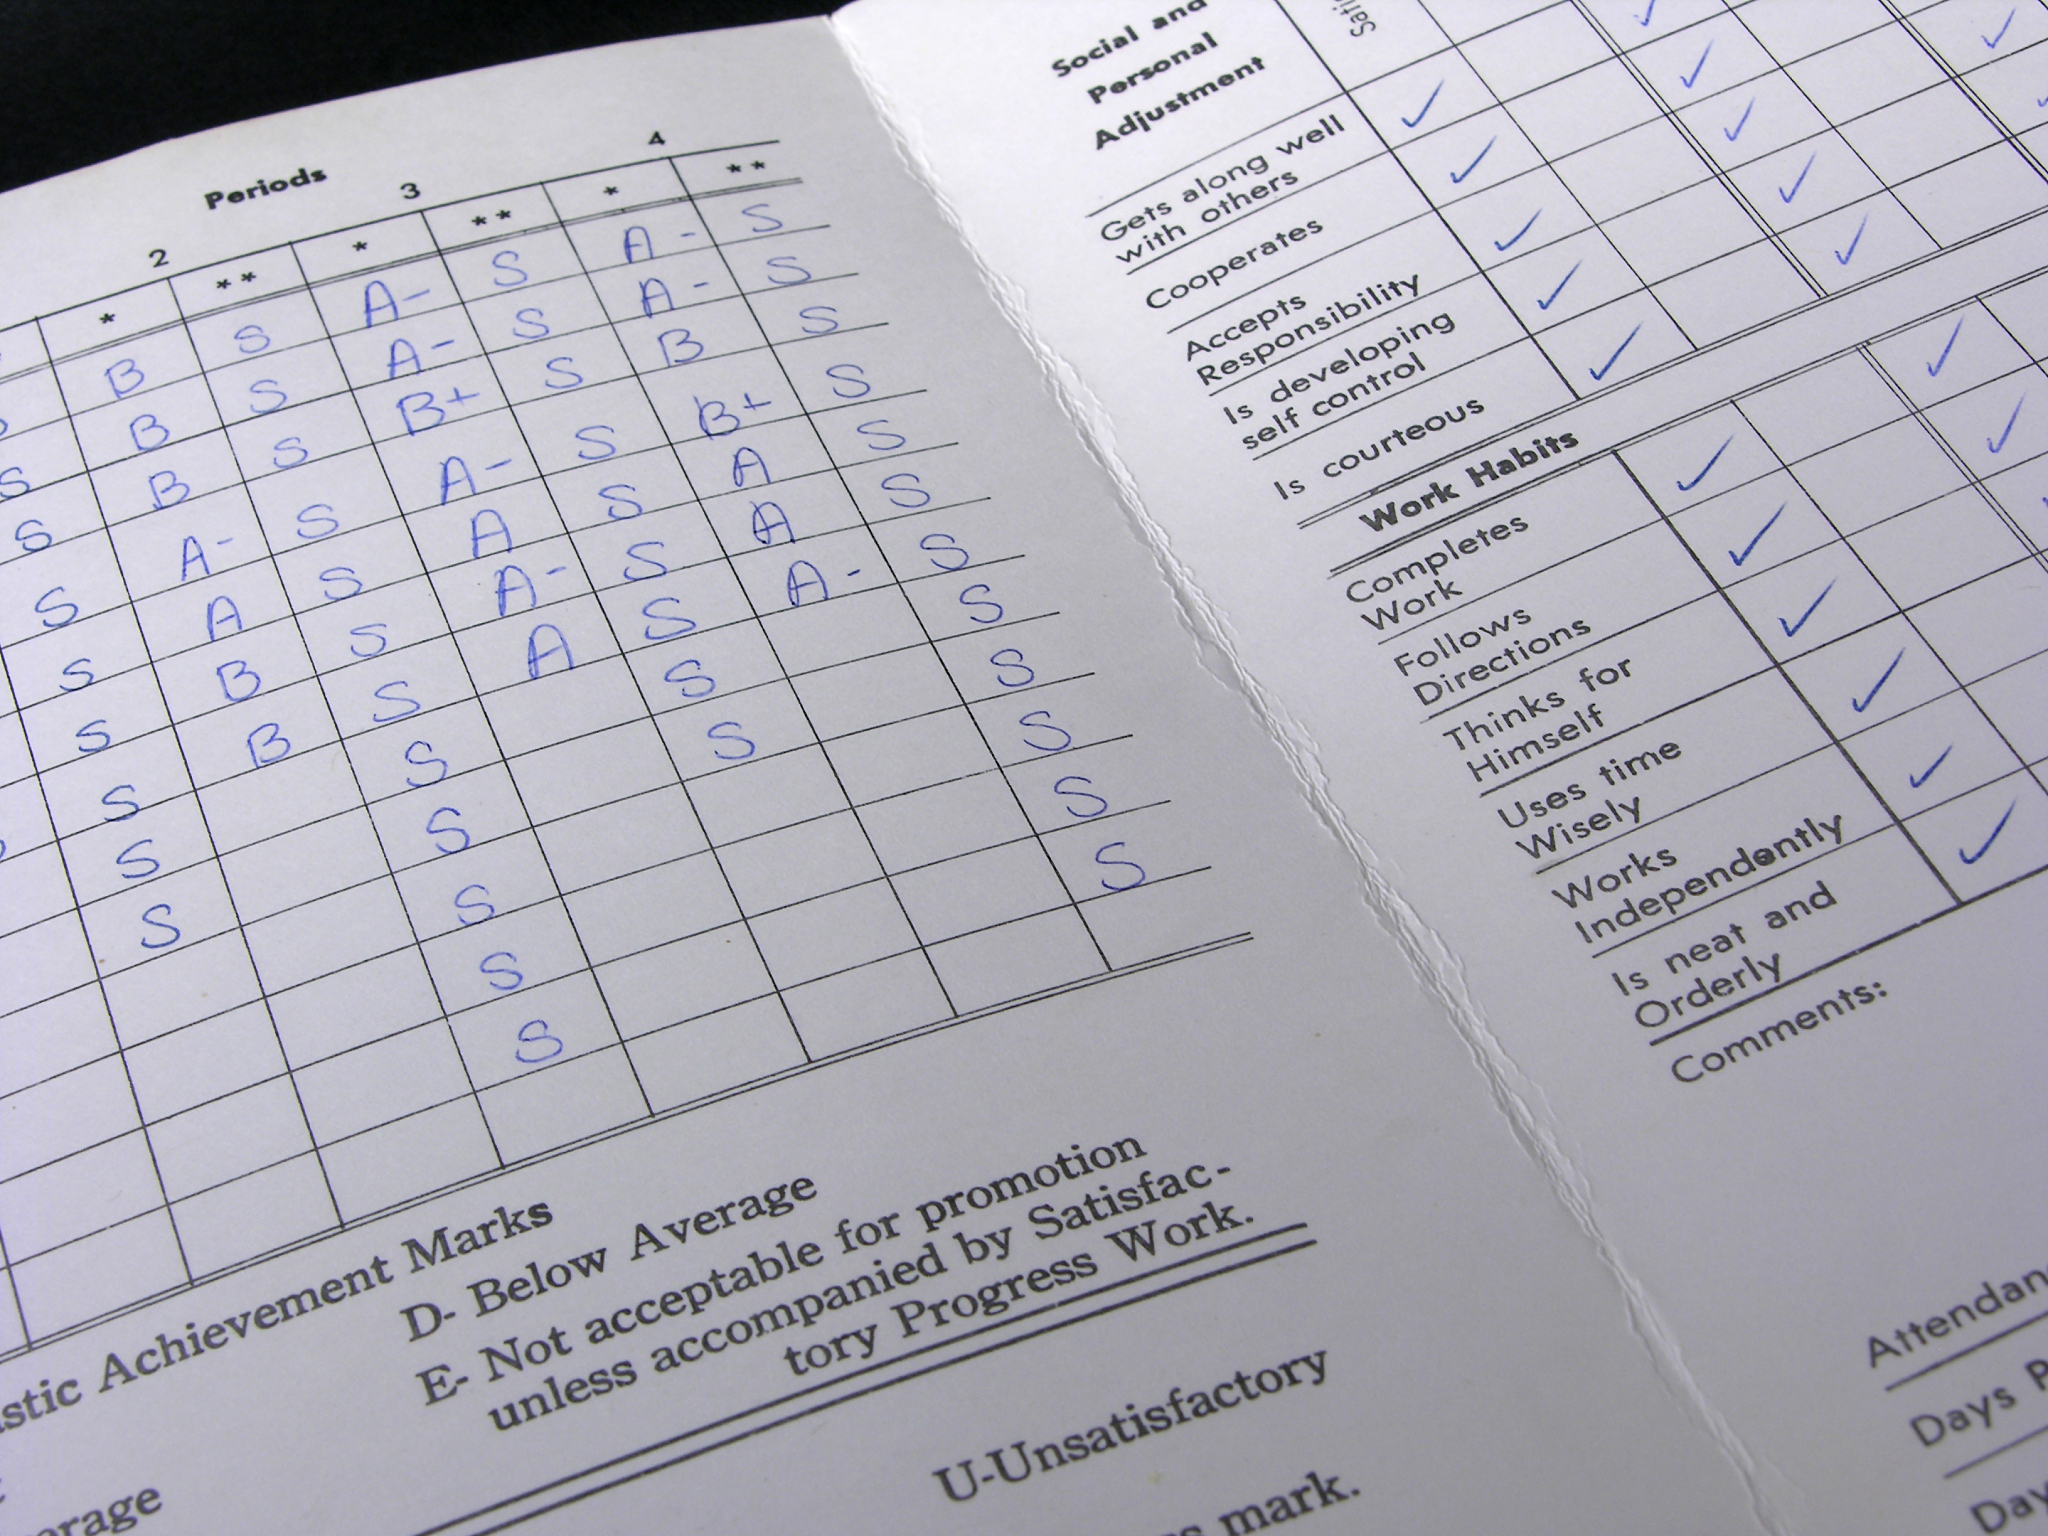 Periods
2 3 4
* ** * ** * **
B S A- S A- S
S B S A- S A- S
S B S B+ S B S
S A- S A- S B+ S
S A S A S A S
S B S A- S A S
S B S A S A- S
S S S S
S S S S
S S S
S S
S S
Achievement Marks
D- Below Average
E- Not acceptable for promotion
unless accompanied by Satisfac-
tory Progress Work.
U-Unsatisfactory
mark.
Social and
Personal
Adjustment
Gets along well
with others
Cooperates
Accepts
Responsibility
Is developing
self control
Is courteous
Work Habits
Completes
Work
Follows
Directions
Thinks for
Himself
Uses time
Wisely
Works
Independently
Is neat and
Orderly
Comments:
Days